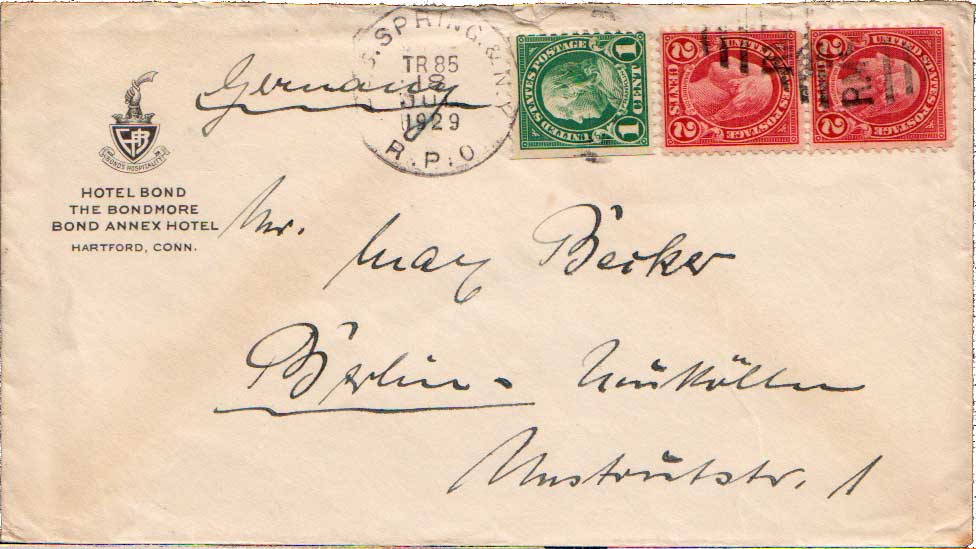 Germany
S. SPRING. & N.Y.
TR 85
18
1929
R.P.O.
UNITED STATES POSTAGE
1 CENT 1
UNITED STATES POSTAGE
2 CENTS 2
UNITED STATES POSTAGE
2
BOND'S HOSPITALITY
HOTEL BOND
THE BONDMORE
BOND ANNEX HOTEL
HARTFORD, CONN.
Mr.
Max Becker
Berlin - Neukölln
Unstrutstr. 1